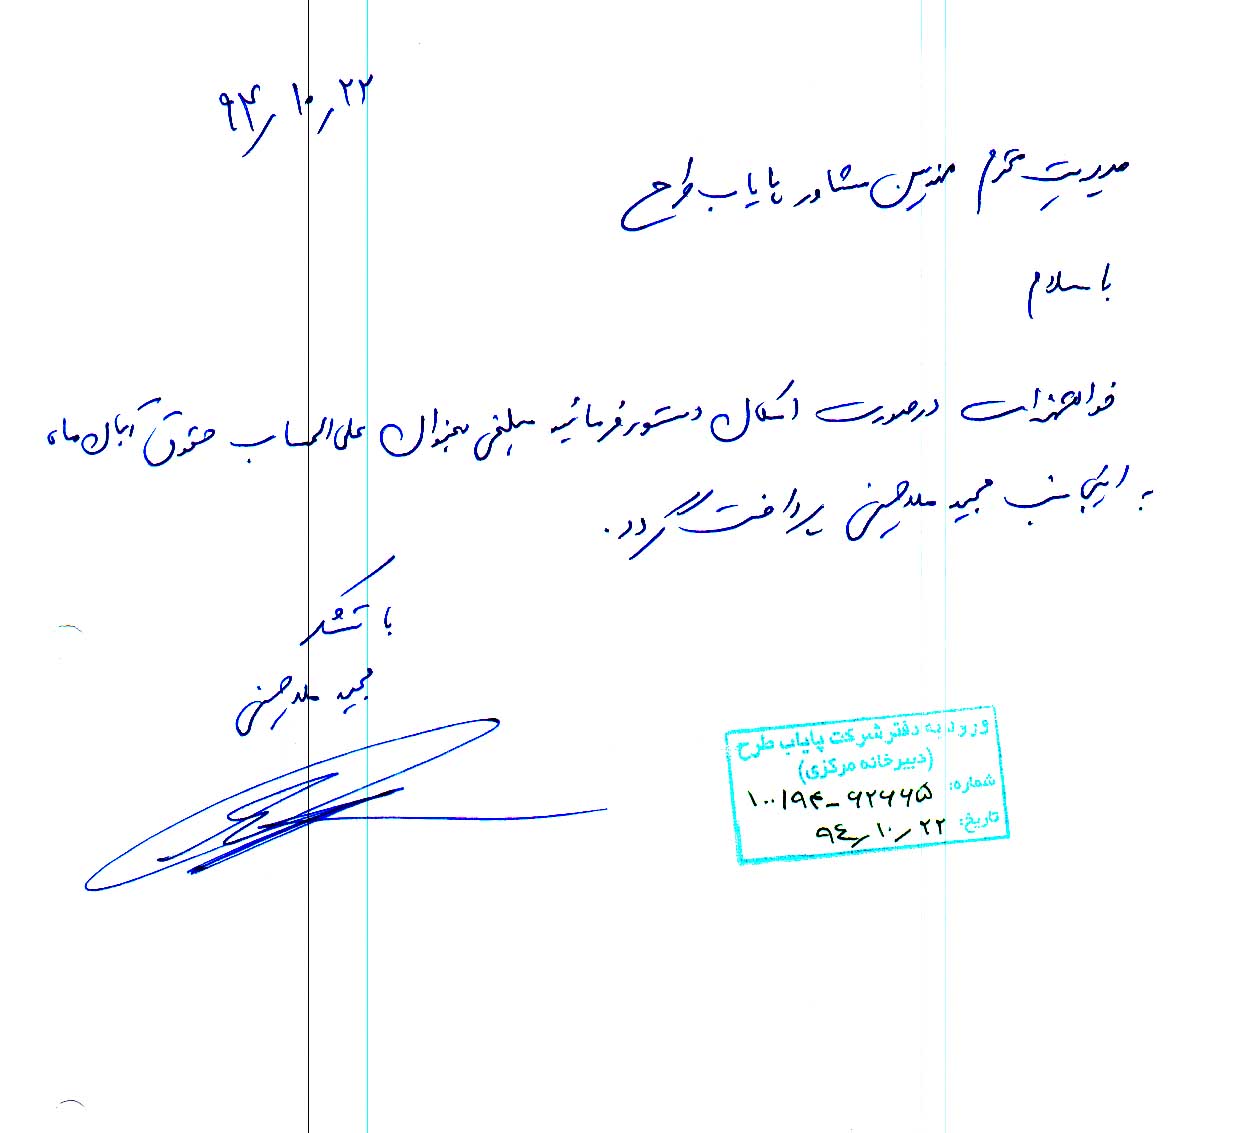 ۹۴/۱۰/۲۲
مدیریت محترم مهندسین مشاور پایاب طرح
با سلام
خواهشمند است در صورت امکان دستور فرمائید مبلغی بعنوان علی الحساب حقوق آبان ماه
به اینجانب مجید ملاحسنی پرداخت گردد.
با تشکر
مجید ملاحسنی
ورود به دفتر شرکت پایاب طرح
(دبیرخانه مرکزی)
شماره: ۱۰۰/۹۴-۶۲۶۶۵
تاریخ: ۹٤/۱۰/۲۲